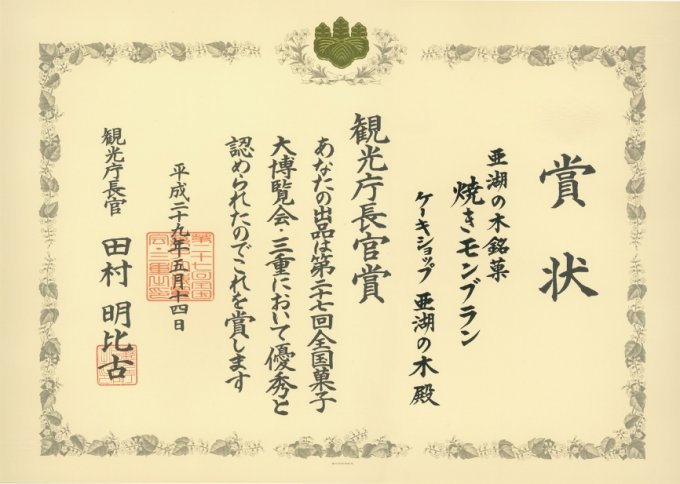 賞状
亜湖の木銘菓
焼きモンブラン
ケーキショップ 亜湖の木殿
観光庁長官賞
あなたの出品は第二十七回全国菓子
大博覧会・三重において優秀と
認められたのでこれを賞します
平成二十九年五月十四日
観光庁長官 田村 明比古